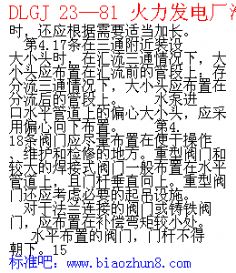 DLGJ 23—81 火力发电厂汽
时，还应根据需要适当加长。
第4.17条在三通附近装设
大小头时，在汇流三通情况下，大
小头应布置在汇流前的管段上。在
分流三通情况下，大小头应布置在
分流后的管段上。 水泵进
口水平管道上的偏心大小头，应采
用偏心向下布置。 第4.
18条阀门应尽量布置在便于操作
、维护和检修的地方。重型阀门和
较大的焊接式阀门一般布置在水平
管道上，且门杆垂直向上。重型阀
门还应考虑必要的起吊设施。
对于法兰连接的阀门或铸铁阀
门，应布置在补偿弯矩较小处。
水平布置的阀门，门杆不得
朝下。15
标准吧:www.biaozhun8.com